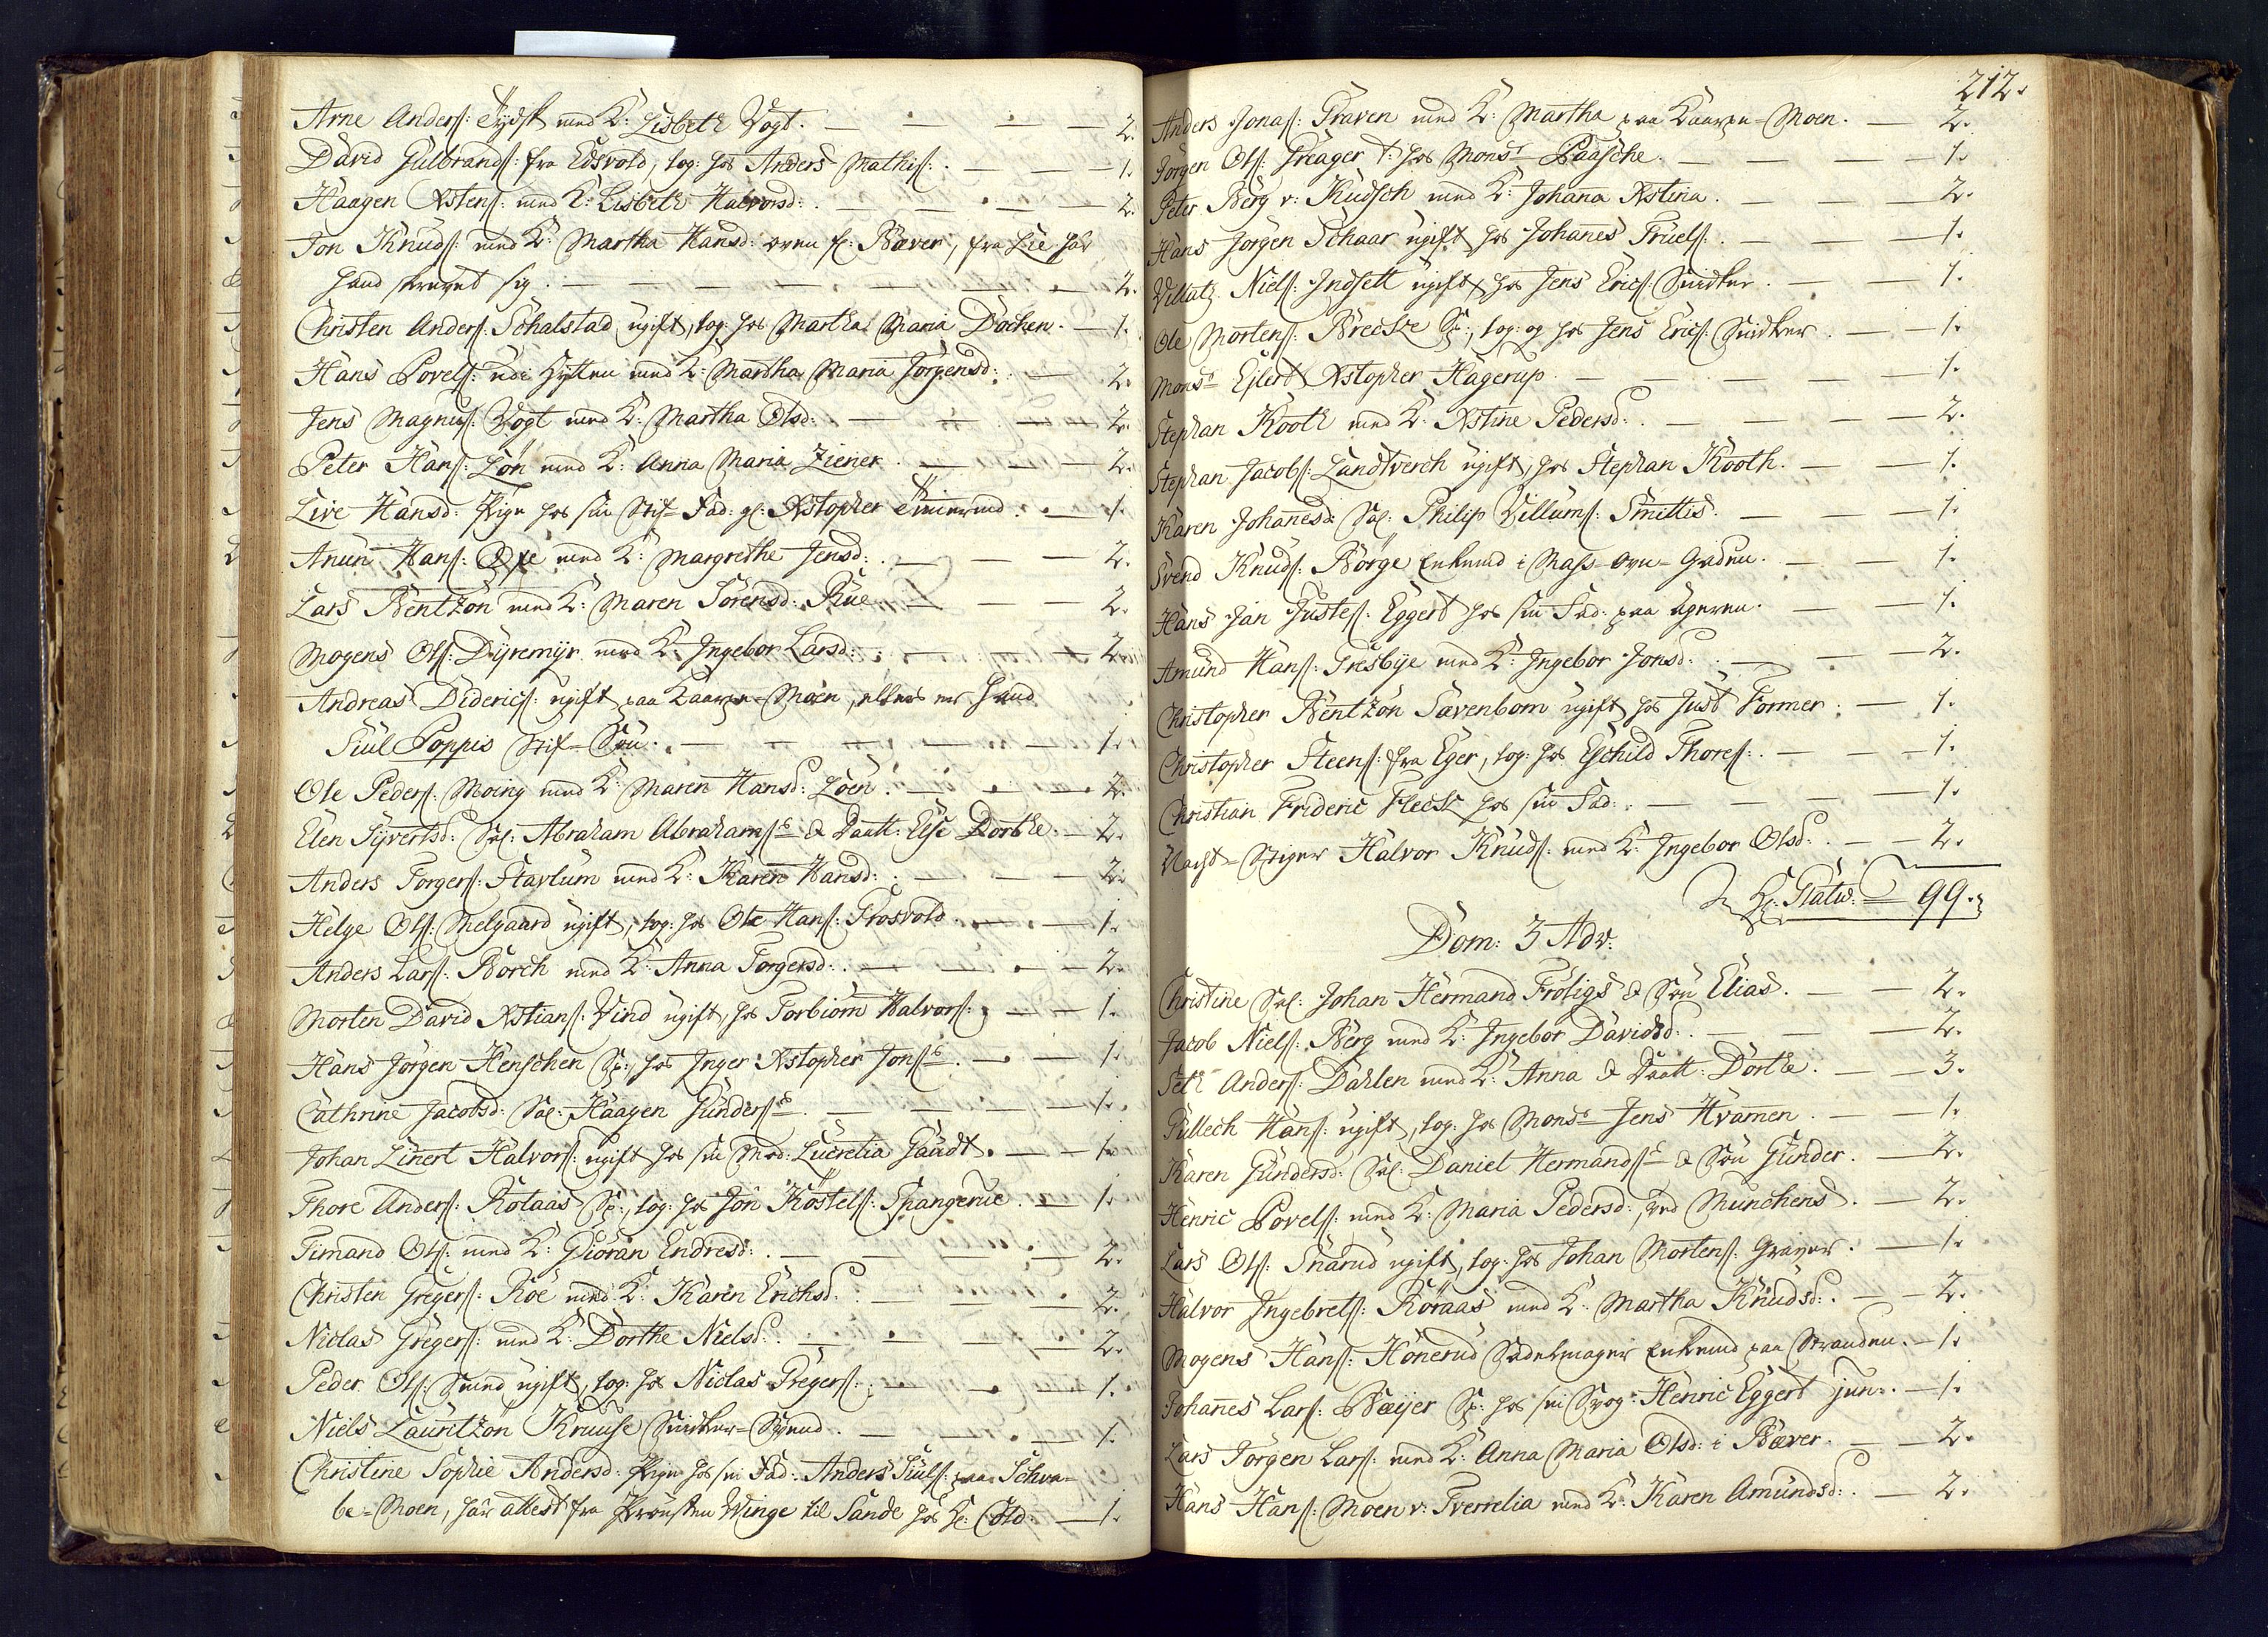 Arne Anders: Tydsk med K: Lisbeth Vogt. — 2.
David Gulbrands: fra Edsvold, log: hos Anders Mathis: — 1.
Haagen Xstens: med K: Lisbeth Halvorsd: — 2.
Jon Knuds: med K: Martha Hansd: oven f: Bæver, fra Lie har
hand skrevet sig. — 2.
Christen Anders: Schalstad ugift, log: hos Martha Maria Dochen. — 1.
Hans Povels: ved Hytten med K: Martha Maria Jørgensd: — 2.
Jens Magnus: Vogt med K: Martha Olsd: — 2.
Peter Hans: Løn med K: Anna Maria Ziener. — 2.
Live Hansd: Pige hos sin Stif-Fad: gl: Xstopher — 1.
Anun Hans: Øxe med K: Margrethe Jensd: — 2.
Lars Bentzon med K: Maren Sørensd: Rue — 2.
Mogens Ols: Dyremyr med K: Ingebor Larsd: — 2.
Andreas Diderics: ugift paa Kaarpe-Moen, ellers er hand
Siul Poppis Stif-Søn. — 1.
Ole Peders: Moing med K: Maren Hansd: Løen. — 2.
Elen Syvertsd: Sal: Abraham Abrahams:s & Daatt: Else Dorthe. — 2.
Anders Torgers: Stavlum med K: Karen Hansd: — 2.
Helge Ols: Melgaard ugift, log: hos Ole Hans: Frosvold. — 1.
Anders Lars: Borch med K: Anna Torgersd: — 2.
Morten David Xstians: Vind ugift, hos Torbiørn Halvors: — 1.
Hans Jørgen Henschen Sp:, hos Inger Xstopher Jons:s — 1.
Cathrine Jacobsd: Sal: Haagen Gunders:s — 1.
Johan Linert Halvors: ugift hos sin Mod: Lucretia Gaudt. — 1.
Thore Anders: Rolaas Sp:, log: hos Jon Kostels: Spangerue. — 1.
Timand Ols: med K: Giøran Endresd: — 2.
Christen Gregers: Roe med K: Karen Erichsd: — 2.
Niclas Gregers: med K: Dorthe Nielsd: — 2.
Peder Ols: Smed ugift, log: hos Niclas Gregers: — 1.
Niels Lauritzon Kruuse Snidker-Svend. — 1.
Christine Sophie Andersd: Pige hos sin Fad: Anders Siuls: paa Schva-
be-Moen, har attest fra Provsten Winge til Sande hos Hr: Cold. — 1.
212.
Anders Jonas: Traven med K: Martha paa Kaarpe-Moen. — 2.
Jørgen Ols: Greager T: hos Monsr Paasche. — 1.
Peter Berg v: Kudsch med K: Johana Xstina. — 2.
Hans Jørgen Schaar ugift hos Johanes Truels: — 1.
Villatz Niels: Indsett ugift, hos Jens Erics: Snidker. — 1.
Ole Mortens: Brecke Sp:, log: og hos Jens Erics: Snidker. — 1.
Monsr Ejlert Xstopher Hagerup. — 1.
Stephan Kooth med K: Xstine Pedersd: — 2.
Stephan Jacobs: Landtverch ugift, hos Stephan Kooth. — 1.
Karen Johanesd: Sal: Philip Villums: Smittis. — 1.
Svend Knuds: Borge Enkemd i Mass-ovn-Gaden. — 1.
Hans Jan Justes: Eggert hos sin Fad: paa Ageren. — 1.
Amund Hans: Gresbye med K: Ingebor Jonsd: — 2.
Christopher Bentzon Savenbom ugift, hos Just Former. — 1.
Christopher Steens: fra Eger, log: hos Eschild Thores: — 1.
Christian Frideric Fleck hos sin Fad: — 1.
Nacht-Stiger Halvor Knuds: med K: Ingebor Olsd: — 2.
Hr: Platw: — 99.
Dom: 3 Adv:
Christine Sal: Johan Hermand Frøligs & Søn Elias. — 2.
Jacob Niels: Berg med K: Ingebor Davidsd: — 2.
Seth Anders: Dahlen med K: Anna & Daatt: Dorthe. — 3.
Pullech Hans: ugift, log: hos Monsr Jens Hvamen. — 1.
Karen Gundersd: Sal: Daniel Hermands:s & Søn Gunder. — 2.
Henric Povels: med K: Maria Pedersd:, ved Munchens. — 2.
Lars Ols: Snarud ugift, log: hos Johan Mortens: Graver. — 1.
Halvor Ingebrets: Røraas med K: Martha Knudsd: — 2.
Mogens Hans: Hønerud Sadelmager Enkemd paa Stranden. — 1.
Johanes Lars: Bæijer Sp: hos sin Svog: Henric Eggert jun:. — 1.
Lars Jørgen Lars: med K: Anna Maria Olsd: i Bæver. — 2.
Hans Hans: Moen v: Tverrelia med K: Karen Amundsd: — 2.